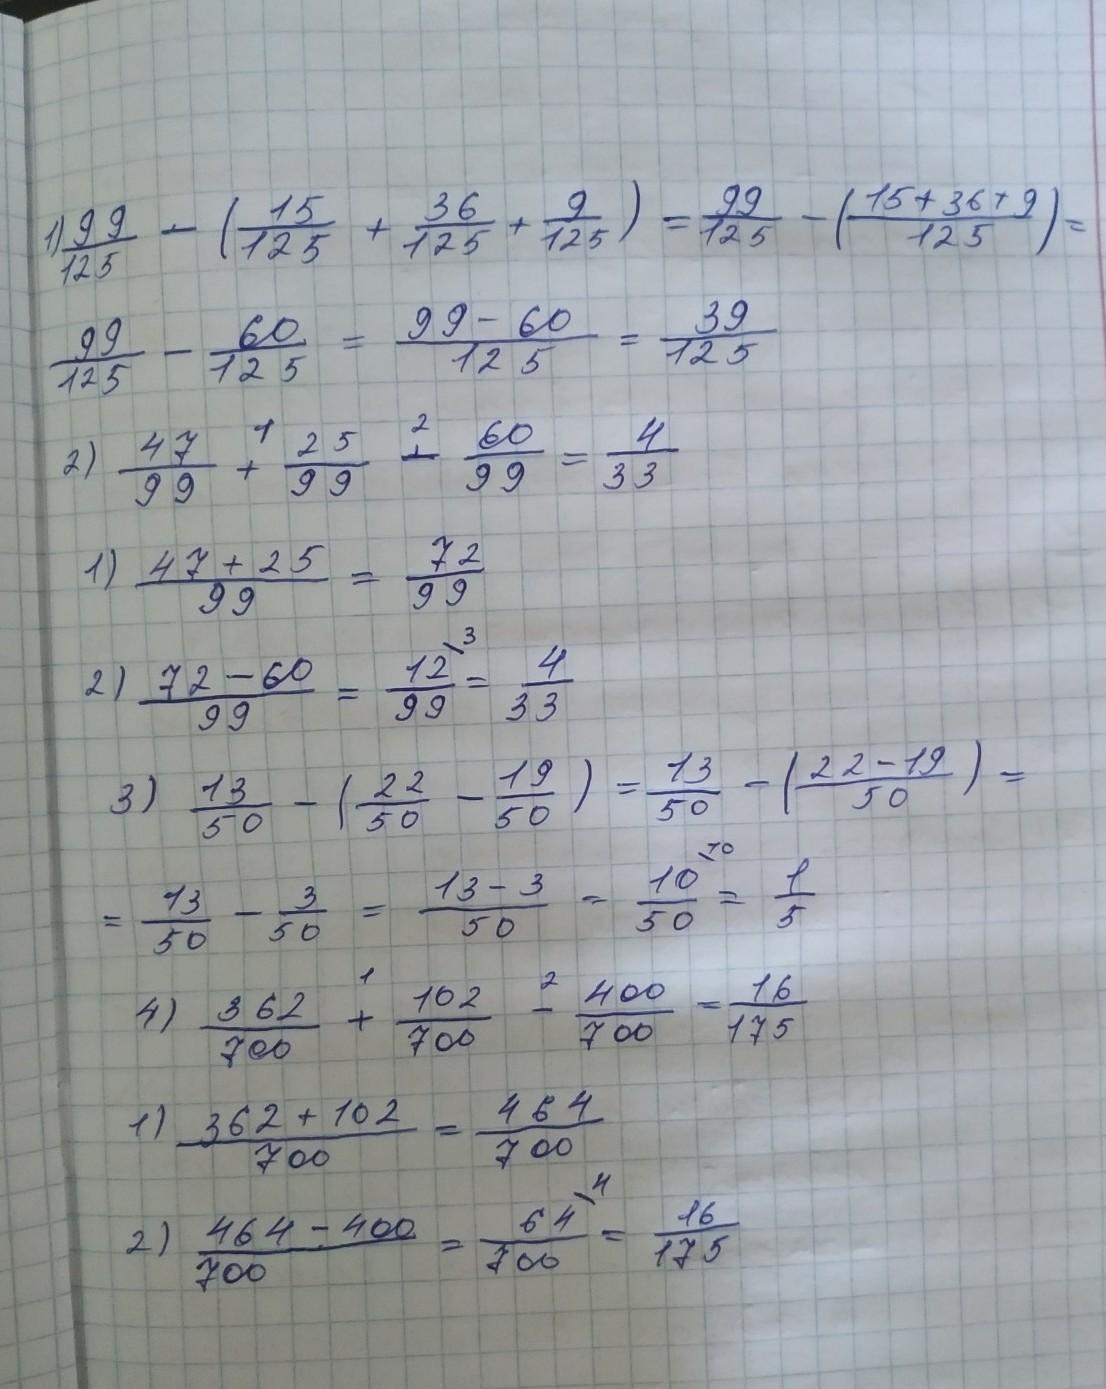 1) 99/125 - (15/125 + 36/125 + 9/125) = 99/125 - (15+36+9/125) =
99/125 - 60/125 = 99-60/125 = 39/125
2) 47/99 +¹ 25/99 -² 60/99 = 4/33
1) 47+25/99 = 72/99
2) 72-60/99 = 12/99\3 = 4/33
3) 13/50 - (22/50 - 19/50) = 13/50 - (22-19/50) =
= 13/50 - 3/50 = 13-3/50 = 10/50\10 = 1/5
4) 362/700 +¹ 102/700 -² 400/700 = 16/175
1) 362+102/700 = 464/700
2) 464-400/700 = 64/700\4 = 16/175